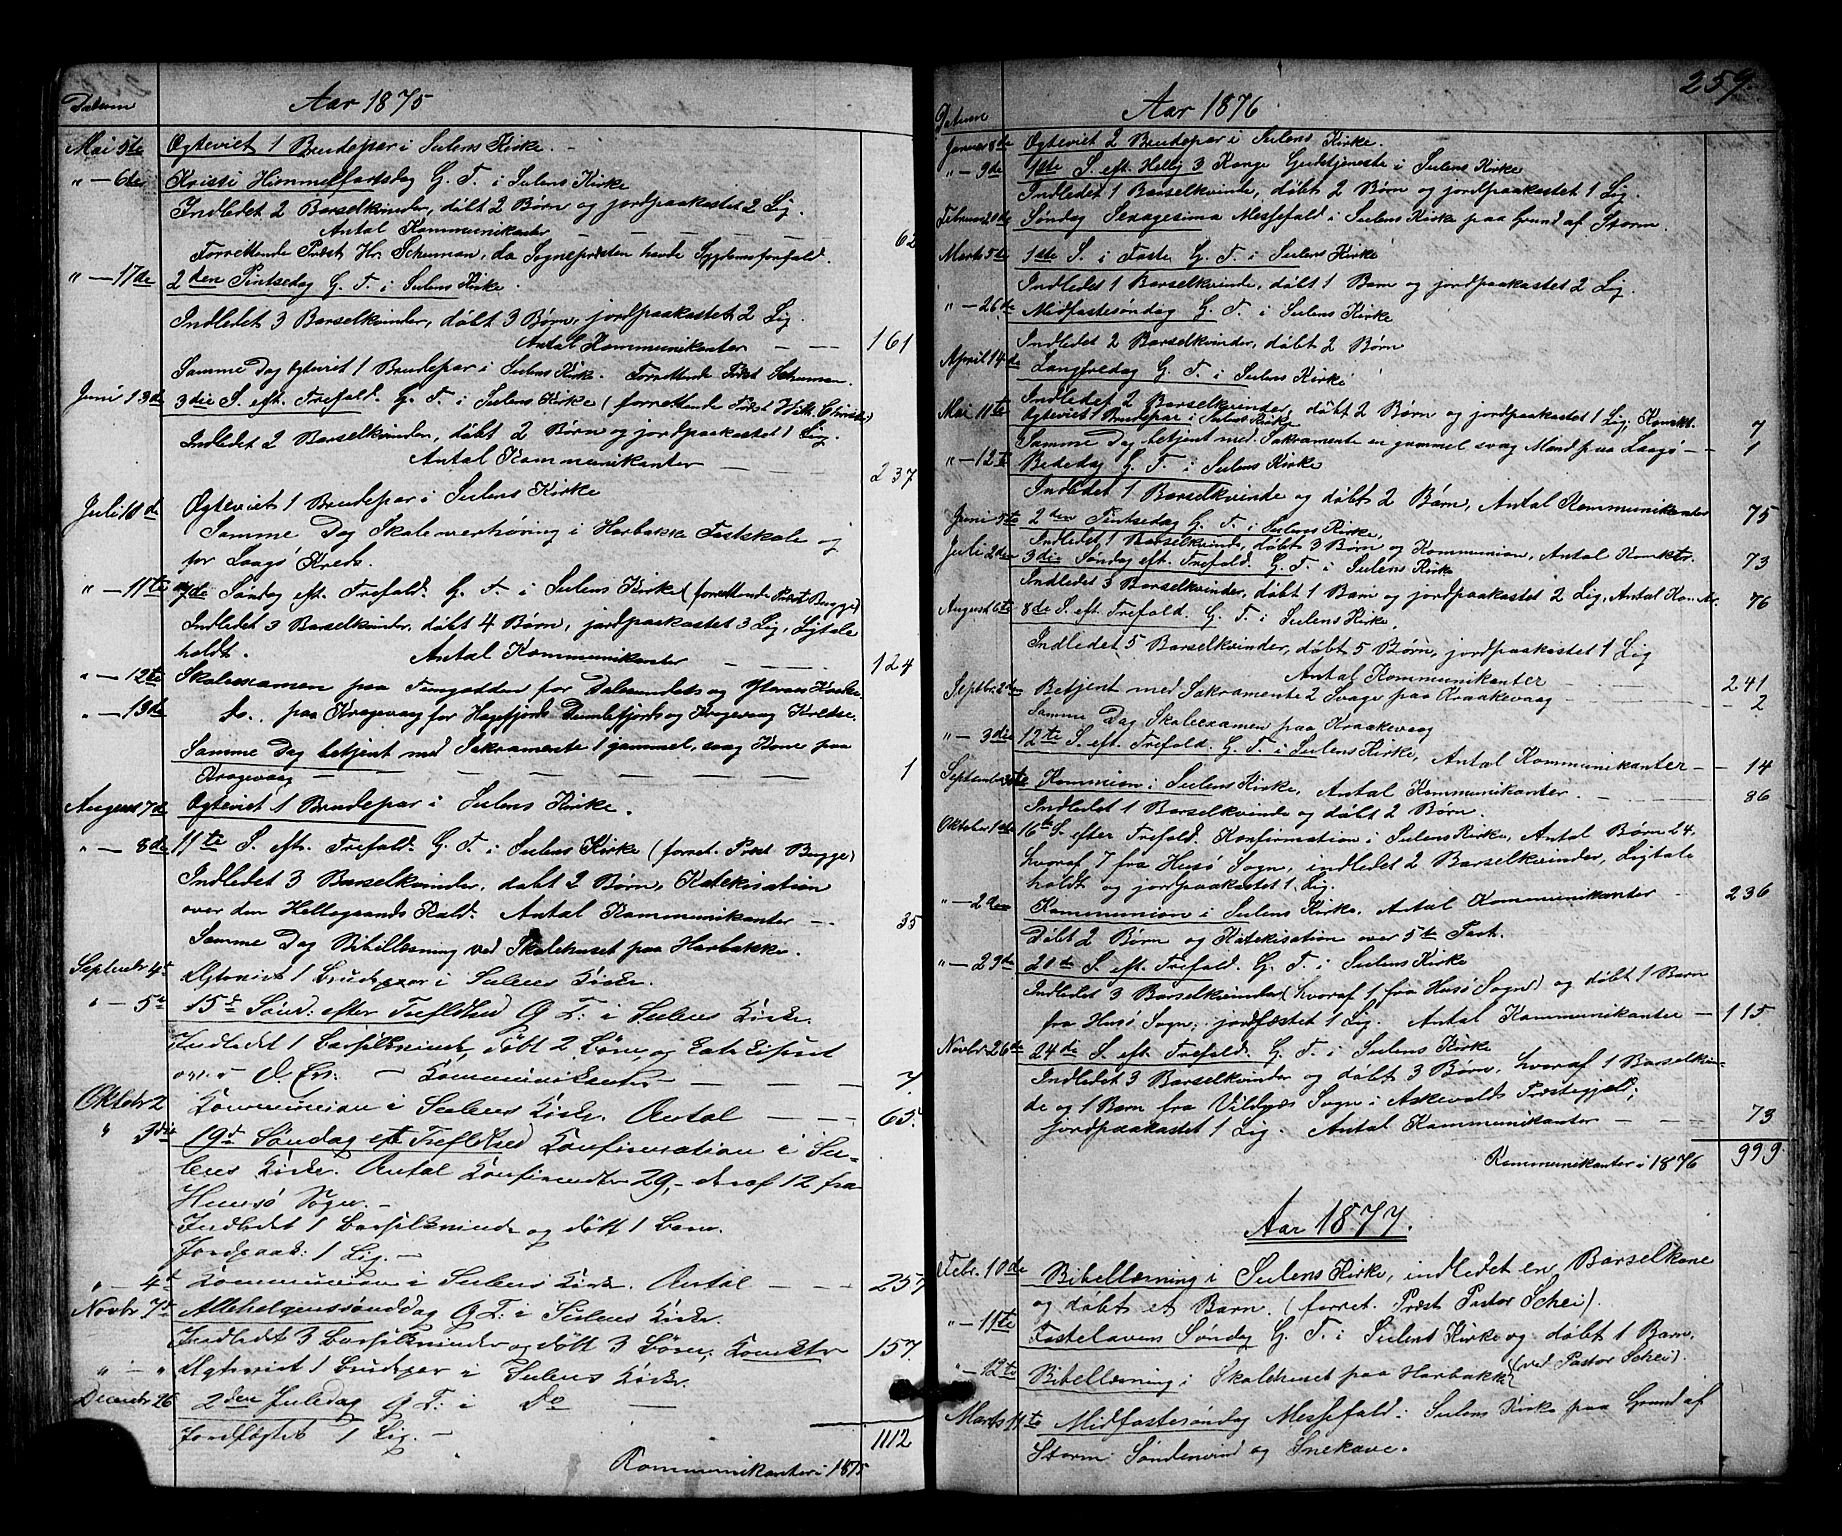 Datum
Aar 1875
Mai 5te Ægteviet 1 Brudepar i Sulens Kirke. -
" - 6te Kristi Himmelfartsdag G. T. i Sulens Kirke
Indledet 2 Barselkvinder, døbt 2 Børn og jordpaakastet 2 Lig.
Antal Kommunikanter - - - - 62
Forrettende Præst Hr. Schuman, da Sognepræsten havde Sygdomsforfald.
" - 17de 2den Pintsedag G. T. i Sulens Kirke.
Indledet 3 Barselkvinder, døbt 3 Børn, jordpaakastet 2 Lig.
Antal Kommunikanter - - - 161
Samme Dag Ægteviet 1 Brudepar i Sulens Kirke. Forrettende Præst Schuman.
Juni 13de 3die S. eft. Trefold. G. T. i Sulens Kirke (forrettende Præst Wilh.
Indledet 2 Barselkvinder, døbt 2 Børn og jordpaakastet 1 Lig.
Antal Kommunikanter - - - 237
Juli 10de Ægteviet 1 Brudepar i Sulens Kirke
Samme Dag Skoleoverhøring i Harbakke Fastskole og
for Laagø Kreds.
" - 11te 7de Søndag eft. Trefold. G. T. i Sulens Kirke (forrettende Præst Bugge)
Indledet 3 Barselkvinder, døbt 4 Børn, jordpaakastet 3 Lig, Ligtale
holdt. Antal Kommunikanter - - - 124
" - 12te Skoleexamen paa Tungodden for Dalesundets og Ytrøens Kredse
" - 13de do. paa Kragevaag for Hagefjords Dumlefjords og Kragevaag Kredse.
Samme Dag betjent med Sakramente 1 gammel, svag Kone paa
Kragevaag - - - - 1
August 7de Ægteviet 1 Brudepar i Sulens Kirke.
" - 8de 11te S. eft. Trefold. G. T. i Sulens Kirke (forret. Præst Bugge)
Indledet 3 Barselkvinder, døbt 2 Børn, Katekisation
over den Helligaands Kald. Antal Kommunikanter - - 35
Samme Dag Bibellæsning ved Skolehuset paa Harbakke.
Septembr 4de Ægteviet 1 Brudepar i Sulens Kirke.
" - 5te 15de Sønd: efter Treflthed G T: i Sulens Kirke.
Indledet 1 Barselkvinde, døbt 2 Børn og Katekiseret
- Kommunikanter - - - 7.
Oktobr 2 Kommunion i Sulens Kirke. Antal - - - 65.
" 3die 19de Søndag eft Treflthed Confirmation i Su-
lens Kirke. Antal Confirmander 29, - deraf 12 fra
Huusø Sogn. -
Indledet 1 Barselkvinde og døbt 1 Barn.
Jordpaak: 1 Lig. -
" - 4de Kommunion i Sulens Kirke. Antal - - - 257
Novbr 7de Allehelgenssønddag G T: i Sulens Kirke.
Indledet 3 Barselkvinder og døbt 3 Børn, Komktr 157.
" - " Ægteviet 1 Brudepar i Sulens Kirke.
Decembr 26 2den Juledag G T: i Do -
Jordfæstet 1 Lig. -
1112
Kommunikanter i 1875
259.
Datum
Aar 1876
Januar 8de Ægteviet 2 Brudepar i Sulens Kirke.
" - 9de 1ste S. eft. Hellig 3 Konge Gudstjeneste i Sulens Kirke
Indledet 1 Barselkvinde, døbt 2 Børn og jordpaakastet 1 Lig.
Februar 20de Søndag Sexagesima Messefald i Sulens Kirke paa Grund af Storm.
Marts 5te 1ste S. i Faste G. T. i Sulens Kirke
Indledet 1 Barselkvinde, døbt 1 Barn og jordpaakastet 2 Lig.
" - 26de Midfastesøndag G. T. i Sulens Kirke
Indledet 2 Barselkvinder, døbt 2 Børn
April 14de Langfredag G. T. i Sulens Kirke
Indledet 2 Barselkvinder, døbt 2 Børn og jordpaakastet 1 Lig; Komkt. 7
Mai 11te Ægteviet 1 Brudepar i Sulens Kirke
Samme Dag betjent med Sakramente en gammel svag Mand paa Laagø - - 1
" - 12te Bededag G. T. i Sulens Kirke
Indledet 1 Barselkvinde og døbt 2 Børn, Antal Kommunikanter 75
Juni 5te 2den Pintsedag G. T. i Sulens Kirke,
Indledet 1 Barselkvinde, døbt 3 Børn og Kommunion, Antal Komktr. 73
Juli 2den 3die Søndag eft. Trefold. G. T. i Sulens Kirke
Indledet 3 Barselkvinder, døbt 1 Barn og jordpaakastet 2 Lig, Antal Kom. 76
August 6te 8de S. eft. Trefold. G. T. i Sulens Kirke.
Indledet 5 Barselkvinder, døbt 5 Børn, jordpaakastet 1 Lig
Antal Kommunikanter - - - 241
Septbr. 2den Betjent med Sakramente 2 Svage paa Kraakevaag - - 2
Samme Dag Skoleexamen paa Kraakevaag
" - 3die 12te S. eft. Trefold. G. T. i Sulens Kirke, Antal Kommunikanter - - 14
September 30te Kommion i Sulens Kirke, Antal Kommunikanter - - 86
Indledet 1 Barselkvinde og døbt 2 Børn.
Oktober 1ste 16te S. efter Trefold. Konfirmation i Sulens Kirke, Antal Børn 24.
hvoraf 7 fra Husø Sogn, indledet 2 Barselkvinder, Ligtale
holdt og jordpaakastet 1 Lig.
" - 2den Kommunion i Sulens Kirke. Antal Kommunikanter - - 236
Døbt 2 Børn og Katekisation over 5te Part.
" - 29de 20de S. eft. Trefold. G. T. i Sulens Kirke
Indledet 3 Barselkvinder (hvoraf 1 fra Husø Sogn) og døbt 1 Barn
fra Husø Sogn; jordfæstet 1 Lig. Antal Kommunikanter - 115
Novbr. 26de 24de S. eft. Trefold. G. T. i Sulens Kirke
Indledet 3 Barselkvinder og døbt 3 Børn, hvoraf 1 Barselkvin-
de og 1 Barn fra Vilnæs Sogn i Askevolds Præstegjæld;
Jordpaakastet 1 Lig. Antal Kommunikanter - - - 73
Kommunikanter i 1876 999.
Aar 1877.
Febr. 10de Bibellæsning i Sulens Kirke, indledet en Barselkone
og døbt et Barn. (forret. Præst Pastor Schei).
" - 11te Fastelavens Søndag G. T. i Sulens Kirke og døbt 1 Barn.
" - 12te Bibellæsning i Skolehuset paa Harbakke (ved Pastor Schei)
Marts 11te Midfastesøndag Messefald i Sulens Kirke paa Grund af
Storm Søndenvind og Snekave.